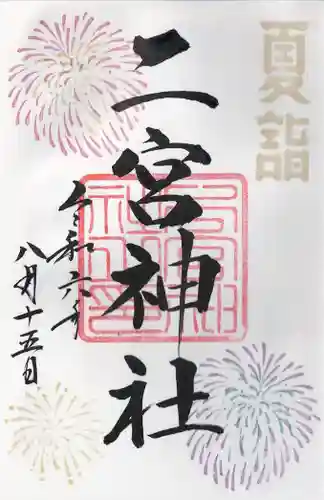 夏詣
二宮神社
令和六年
八月十五日